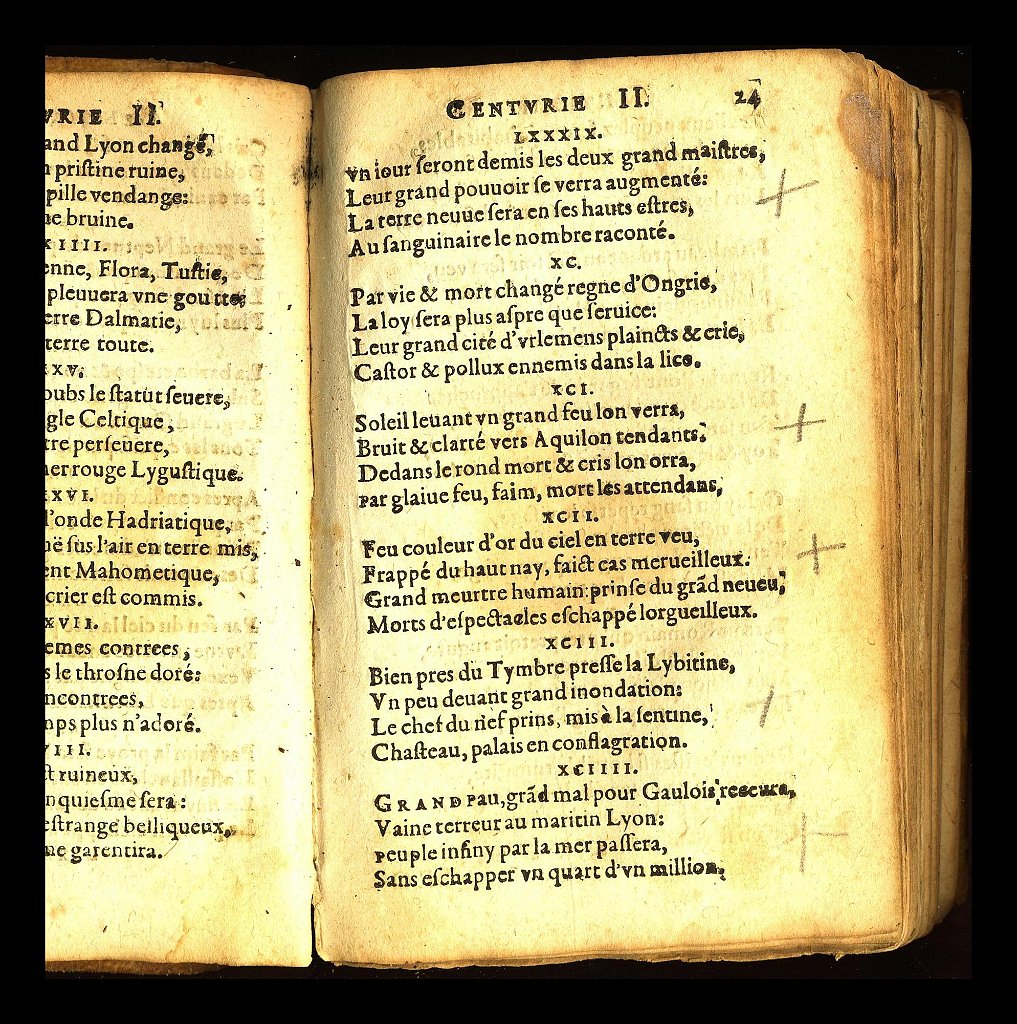 VRIE II.
and Lyon changé,
n pristine ruine,
pille vendange:
ue bruine.
XIIII.
enne, Flora, Tustie,
pleuuera vne goutte;
erre Dalmatie,
terre toute.
XXV.
oubs le statut seuere,
gle Celtique,
tre perseuere,
mer rouge Lygustique.
XXVI.
l'onde Hadriatique,
në sus l'air en terre mis,
ent Mahometique,
crier est commis.
XXVII.
emes contrees,
s le throsne doré:
ncontrees,
mps plus n'adoré.
VIII.
st ruineux,
nquiesme sera:
estrange belliqueux,
ne garentira.
CENTVRIE II. 24
LXXXIX.
Vn iour ſeront demis les deux grand maiſtres,
Leur grand pouuoir ſe verra augmenté:
La terre neuue ſera en ſes hauts eſtres,
Au ſanguinaire le nombre raconté.
XC.
Par vie & mort changé regne d'Ongrie,
La loy ſera plus aſpre que ſeruice:
Leur grand cité d'vrlemens plaincts & crie,
Caſtor & pollux ennemis dans la lice.
XCI.
Soleil leuant vn grand feu lon verra,
Bruit & clarté vers Aquilon tendants:
Dedans le rond mort & cris lon orra,
Par glaiue feu, faim, mort les attendans,
XCII.
Feu couleur d'or du ciel en terre veu,
Frappé du haut nay, faict cas merueilleux:
Grand meurtre humain: prinſe du grãd neueu;
Morts d'eſpectacles eſchappé lorgueilleux.
XCIII.
Bien pres du Tymbre preſſe la Lybitine,
Vn peu deuant grand inondation:
Le chef du nef prins, mis à la ſentine,
Chaſteau, palais en conflagration.
XCIIII.
GRAND Pau, grãd mal pour Gaulois receura,
Vaine terreur au maritin Lyon:
Peuple infiny par la mer paſſera,
Sans eſchapper vn quart d'vn million,